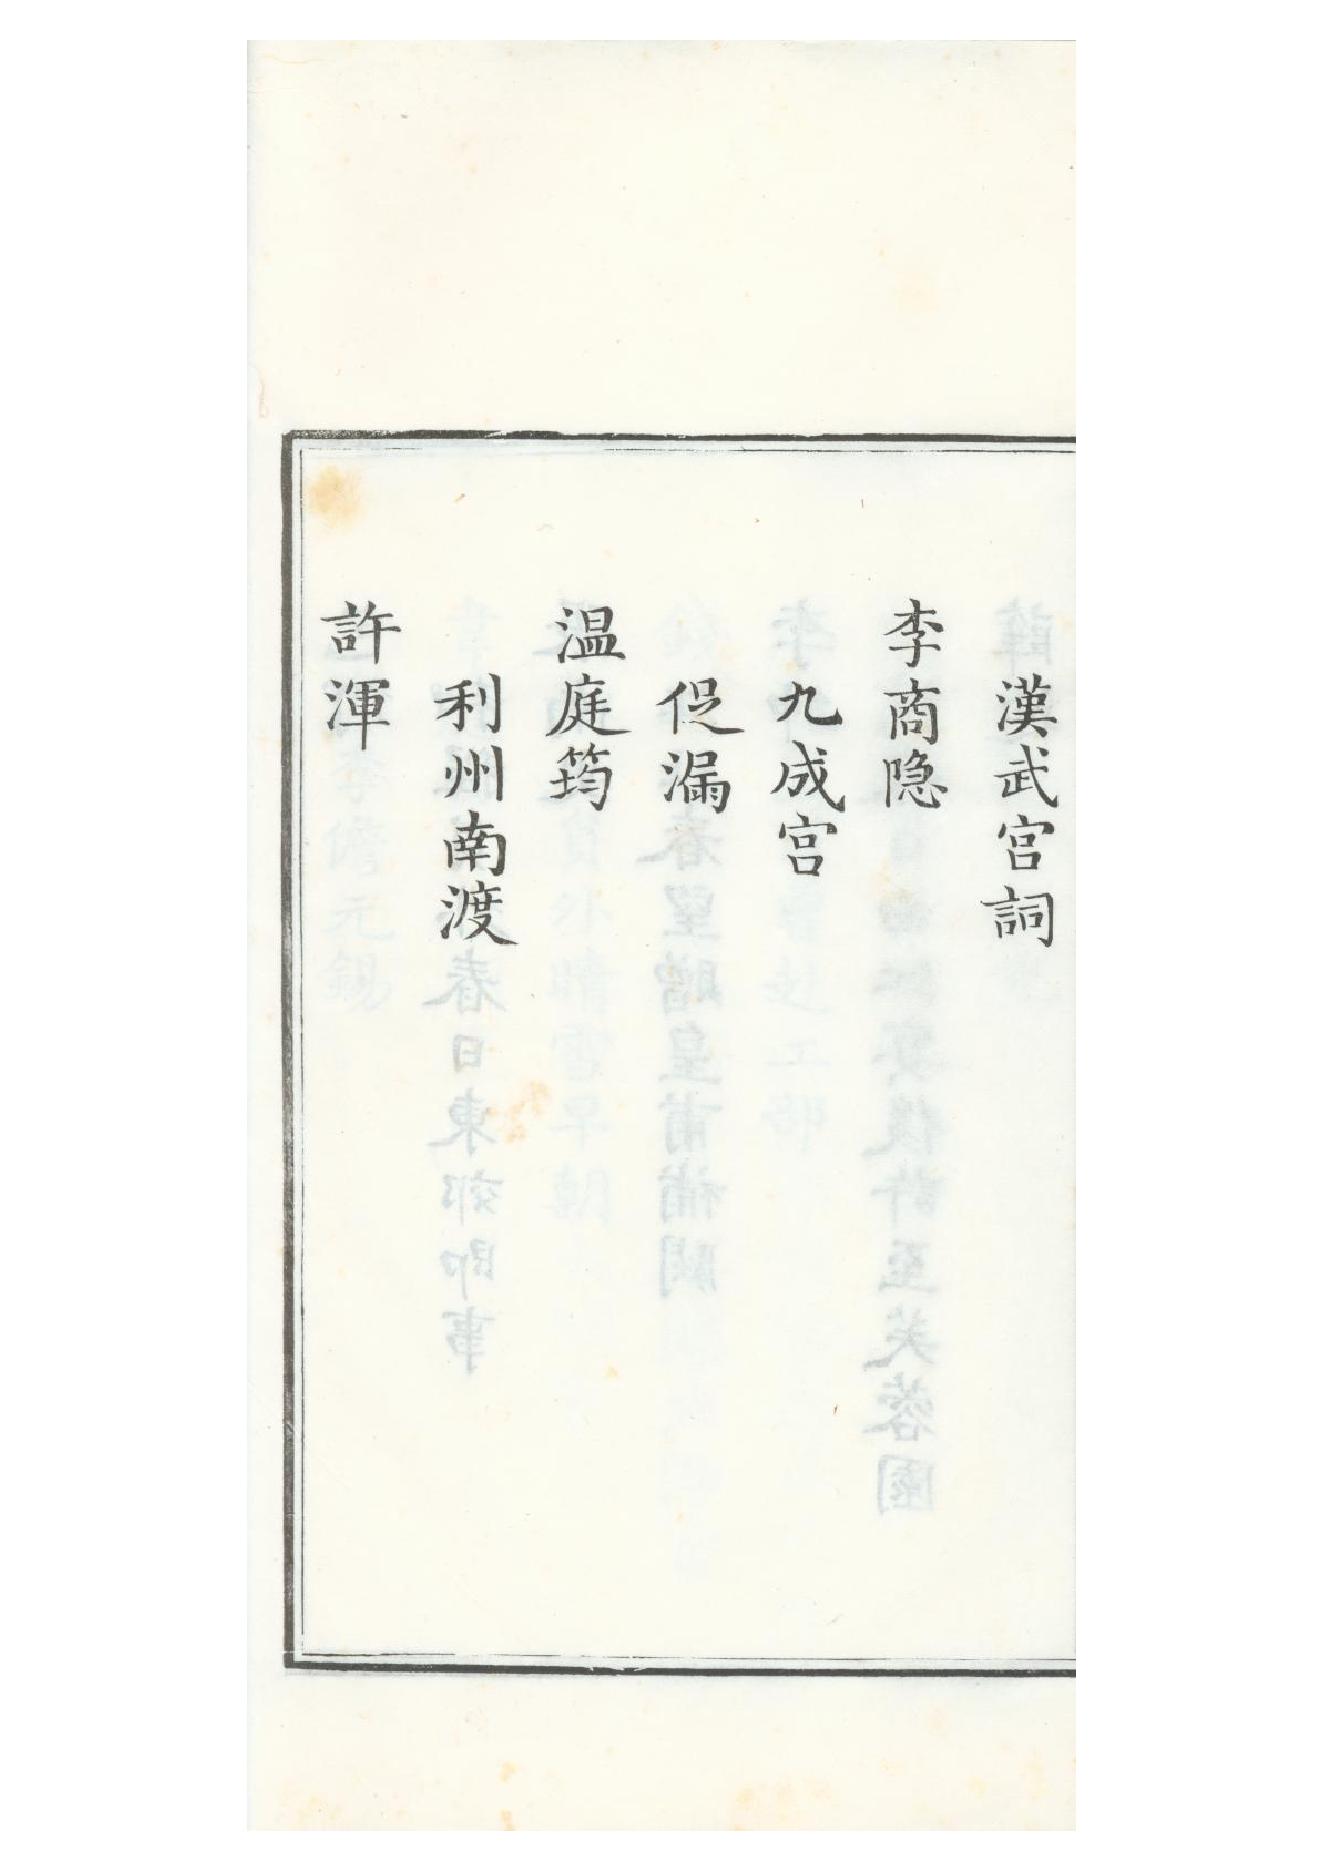 漢武宫詞
李商隐
九成宫
促漏
温庭筠
利州南渡
許渾